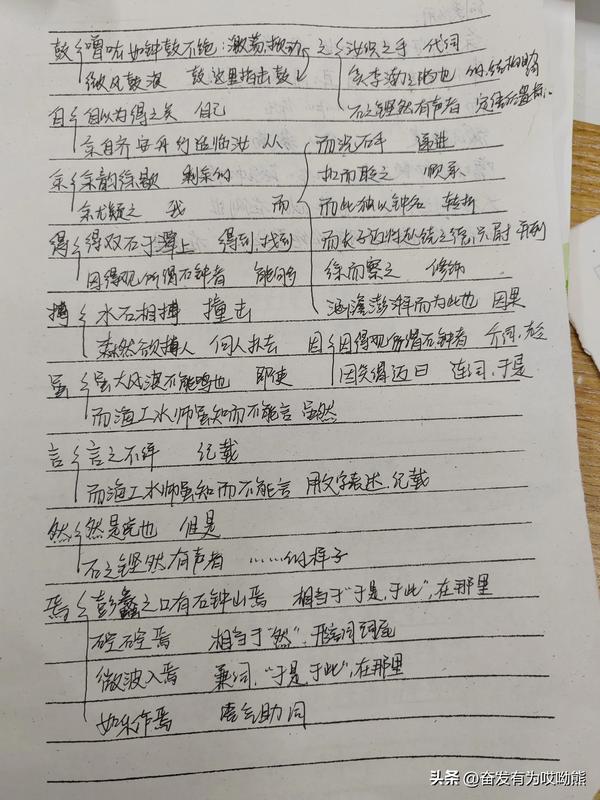 鼓 噌吰如钟鼓不绝：激荡,振动 之 汝识之乎 代词
微风鼓浪 鼓,这里指击鼓 矣李渤之陋也 的,结构助词
自 自以为得之矣 自己 石之铿然有声者 定语后置标
余自齐安舟行适临汝 从 而 而况石乎 递进
余 余韵徐歇 剩余的 扣而聆之 顺承
余尤疑之 我 而此独以钟名 转折
得 得双石于潭上 得到,找到 而长子迈将赴饶之德兴尉 并列
因得观所谓石钟者 能够 徐而察之 修饰
搏 水石相搏 撞击 涵澹澎湃而为此也 因果
森然欲搏人 向人扑去 因 因得观所谓石钟者 介词,
虽 虽大风浪不能鸣也 即使 因笑谓迈曰 连词,于是
而渔工水师虽知而不能言 虽然
言 言之不详 纪载
而渔工水师虽知而不能言 用文字表述、纪载
然 然是说也 但是
石之铿然有声者 ……的样子
焉 彭蠡之口有石钟山焉 相当于"于是,于此",在那里
硿硿焉 相当于"然",形容词词尾
微波入焉 兼词,"于是,于此",在那里
如乐作焉 语气助词
头条 @奋发有为哎呦熊